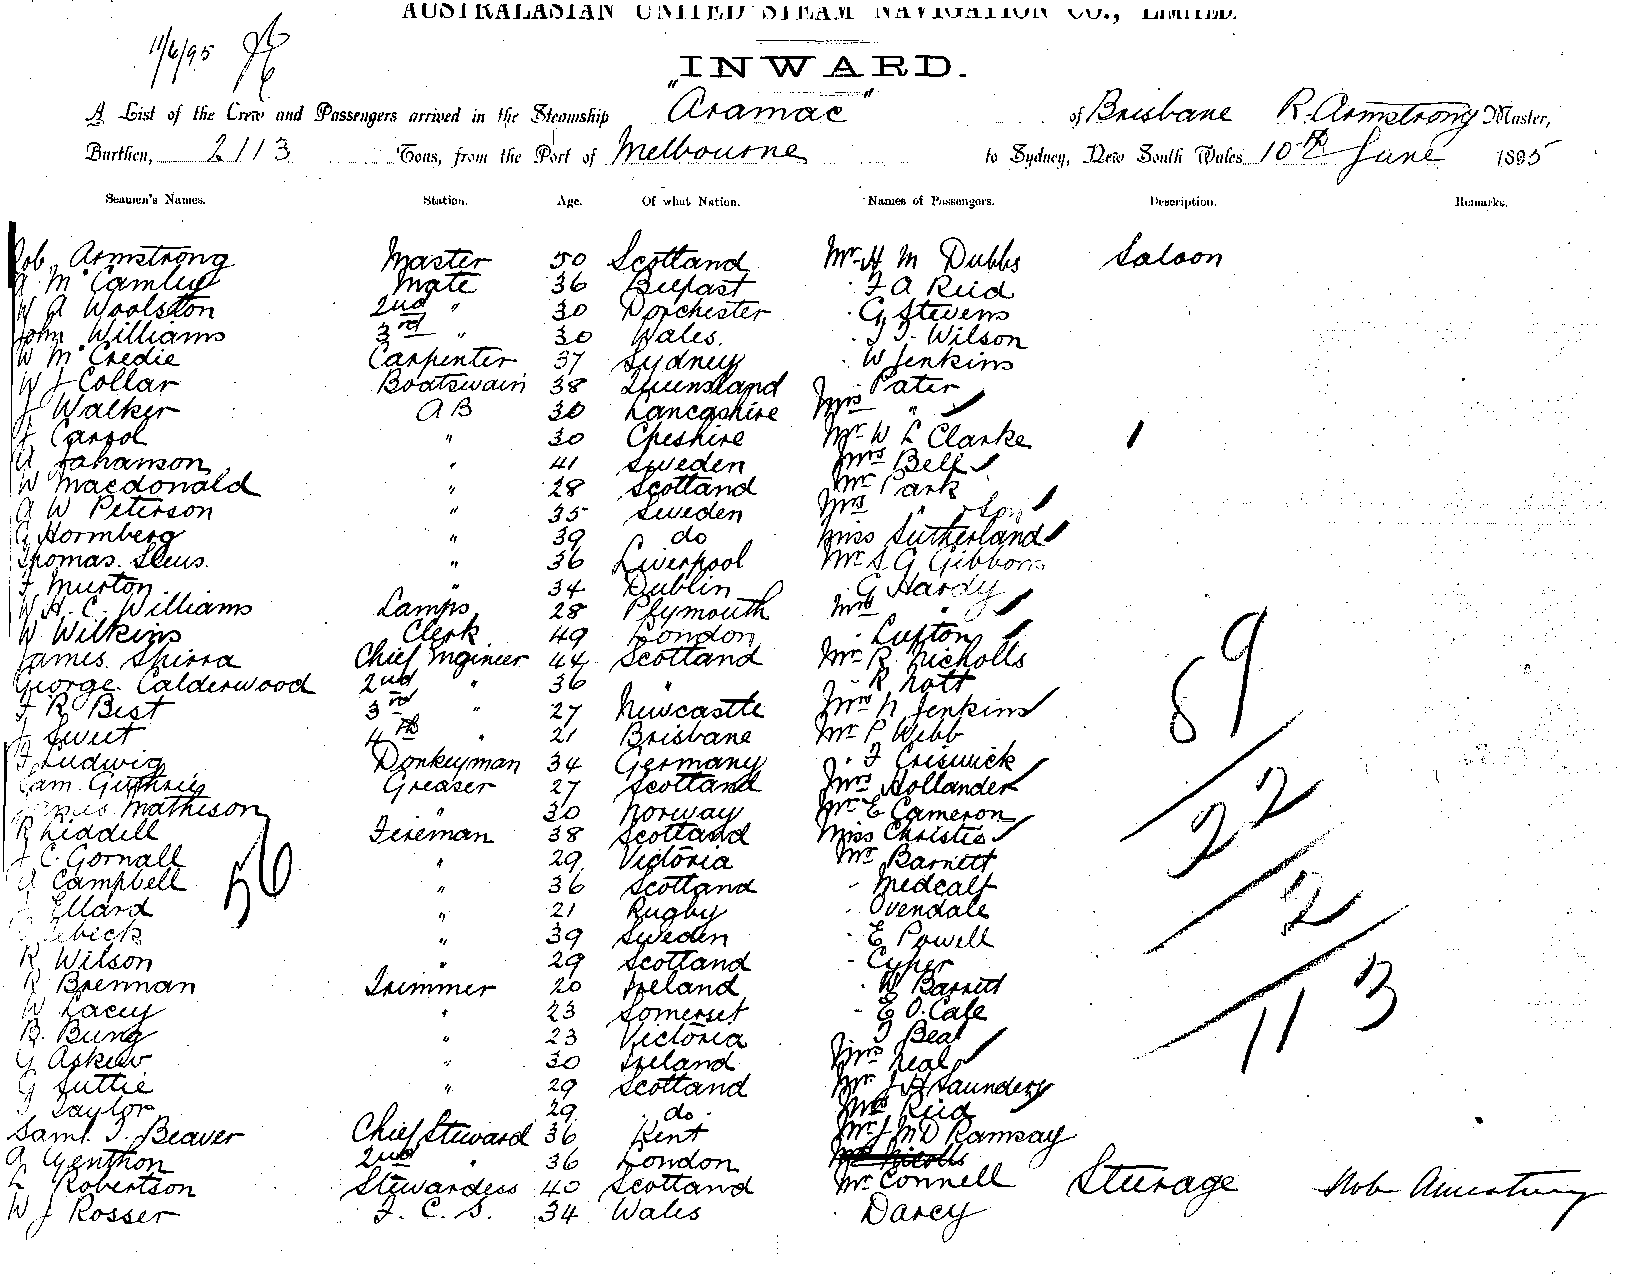 AUSTRALASIAN UNITED STEAM NAVIGATION CO., LIMITED.
11/6/95
INWARD.
A List of the Crew and Passengers arrived in the Steamship "Aramac" of Brisbane R. Armstrong Master,
Burthen, 2113 Tons, from the Port of Melbourne to Sydney, New South Wales 10th June 1895
Seamen's Names. Station. Age. Of what Nation. Names of Passengers. Description. Remarks.
Rob Armstrong Master 50 Scotland Mr H M Dubbs Saloon
McCamley Mate 36 Belfast " F A Reid
W A Woolston 2nd " 30 Dorchester " G Stevens
John Williams 3rd " 30 Wales. Wilson
W McCredie Carpenter 37 Sydney " W Jenkins
W J Collar Boatswain 38 Queensland " Pater
J Walker AB 30 Lancashire Mrs "
J Carrol " 30 Cheshire Mr W L Clarke
A Johanson " 41 Sweden Mrs Bell
W Macdonald " 28 Scotland Mr Park
A W Peterson " 35 Sweden Mrs "
Hormberg " 39 do Miss Sutherland
Thomas " 36 Liverpool Mr S G Gibbons
Murton " 34 Dublin G Hardy
W. H. C. Williams Lamps 28 Plymouth Mrs "
W Wilkins Clerk 49 London " Lupton
James Shirra Chief Engineer 44 Scotland Mr R. Nicholls
George Calderwood 2nd " 36 " " R Nott
F R Best 3rd " 27 Newcastle Mrs N Jenkins
J Sweet 4th " 21 Brisbane Mr P Webb
F Ludwig Donkeyman 34 Germany " F Criswick
Sam Guthrie Greaser 27 Scotland Mrs Hollander
Mathison " 30 Norway Mr E Cameron
R Liddill Fireman 38 Scotland Miss Christie
J C Gornall " 29 Victoria Mr Barnett
Campbell " 36 Scotland " Medcalf
Ellard " 21 Rugby " Ovendale
" 39 Sweden " E Powell
R Wilson " 29 Scotland " Cyper
R Brennan Trimmer 20 Ireland " W Barrett
W Lacey " 23 Somerset " E O. Cafe
B. Bung " 23 Victoria Beal
G Askew " 30 Ireland Mrs Neal
G Suttie " 29 Scotland Mr J H Saunders
Taylor 29 do Mrs Reid
Saml. T. Beaver Chief Steward 36 Kent Mr J McD Ramsay
Genthon 2nd " 36 London
L Robertson Stewardess 40 Scotland Mr Connell Steerage Rob Armstrong
W J Rosser F. C. S. 34 Wales Darcy
56
89
22
2
113